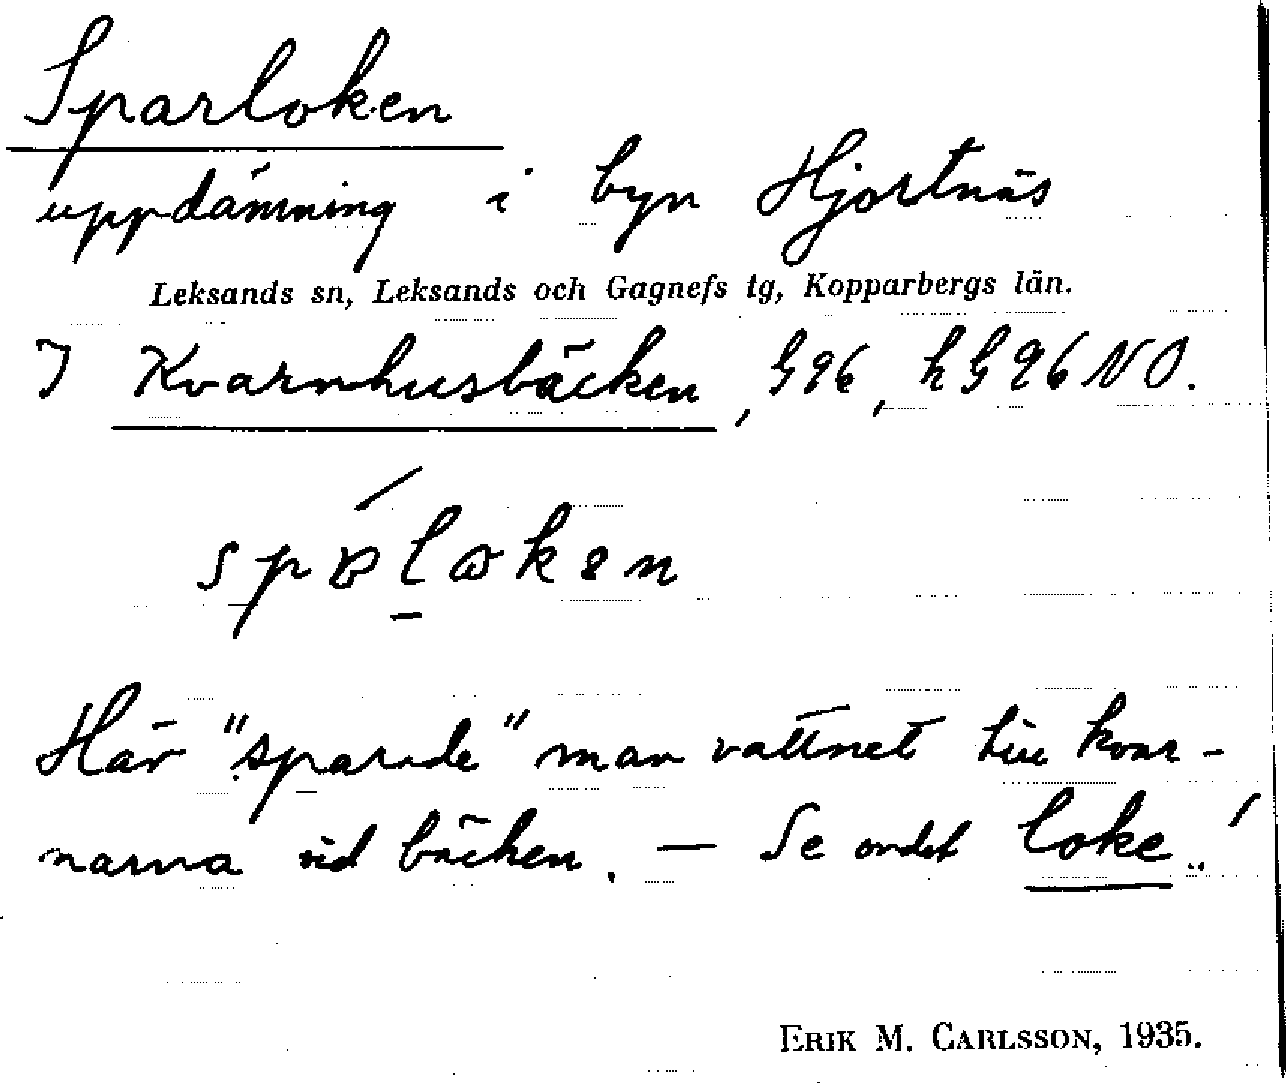 Sparloken
uppdämning i byn Hjortnäs
Leksands sn, Leksands och Gagnefs tg, Kopparbergs län.
I Kvarnhusbäcken, G96, h G96 NO.
Här "sparade" man vattnet till kvar-
narna vid bäcken. — Se ordet loke!
ERIK M. CARLSSON, 1935.